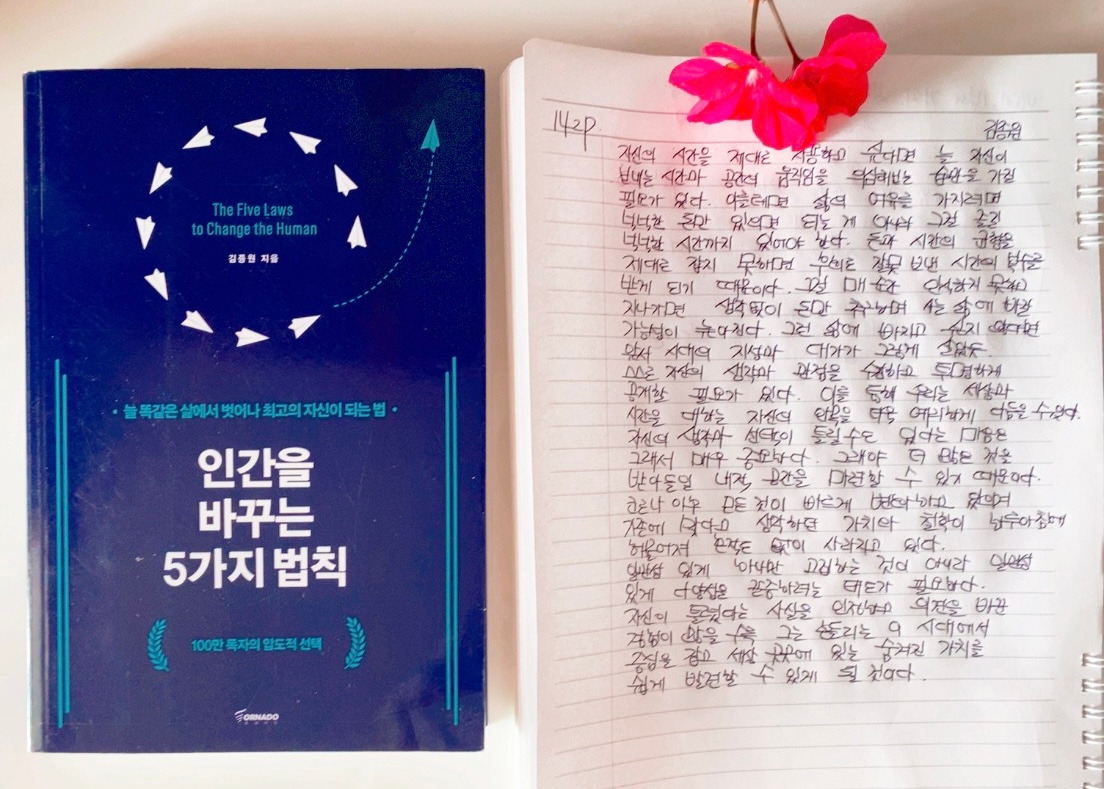 The Five Laws
to Change the Human
김종원 지음
• 늘 똑같은 삶에서 벗어나 최고의 자신이 되는 법 •
인간을
바꾸는
5가지 법칙
100만 독자의 압도적 선택
TORNADO
142p.
김종원
자신의 시간을 제대로 사용하고 싶다면 늘 자신이
보내는 시간과 공간의 움직임을 의심해보는 습관을 가질
필요가 있다. 이를테면 삶의 여유를 가지려면
넉넉한 돈만 있으면 되는 게 아니라 그걸 즐길
넉넉한 시간까지 있어야 한다. 돈과 시간의 균형을
제대로 잡지 못하면 무의미로 잘못 보낸 시간의 복수를
받게 되기 때문이다. 그걸 매 순간 인식하지 못하고
지나가면 생각없이 돈만 추구하며 사는 삶에 빠질
가능성이 높아진다. 그런 삶에 빠지고 싶지 않다면
앞서 시대의 지성과 대가가 그렇게 살았듯
스스로 자신의 생각과 관점을 수정하고 투명하게
공개할 필요가 있다. 이를 통해 우리는 세상과
시간을 대하는 자신의 안목을 더욱 예리하게 다듬을 수 있다.
자신의 생각과 선택이 틀릴수도 있다는 마음은
그래서 매우 중요하다. 그래야 더 많은 것을
받아들일 내적 공간을 마련할 수 있기 때문이다.
코로나 이후 모든 것이 빠르게 변화하고 있으며
기존에 맞다고 생각하던 가치와 철학이 하루아침에
허물어져 흔적도 없이 사라지고 있다.
일관성 있게 하나만 고집하는 것이 아니라 일관성
있게 다양성을 존중하려는 태도가 필요하다.
자신이 틀렸다는 사실을 인정하고 의견을 바꾼
경험이 많을수록 그는 흔들리는 이 시대에서
중심을 잡고 세상 곳곳에 있는 숨겨진 가치를
쉽게 발견할 수 있게 될 것이다.